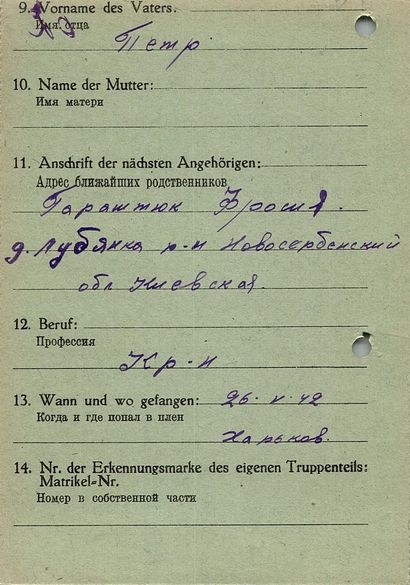 9. Vorname des Vaters.
Имя отца
Петр
10. Name der Mutter:
Имя матери
11. Anschrift der nächsten Angehörigen:
Адрес ближайших родственников
Гараштюк Фрося.
д. Лубянка р-н Новосербенский
обл Киевская.
12. Beruf:
Профессия
Кр-н
13. Wann und wo gefangen: 26. V. 42
Когда и где попал в плен
Харьков.
14. Nr. der Erkennungsmarke des eigenen Truppenteils:
Matrikel-Nr.
Номер в собственной части